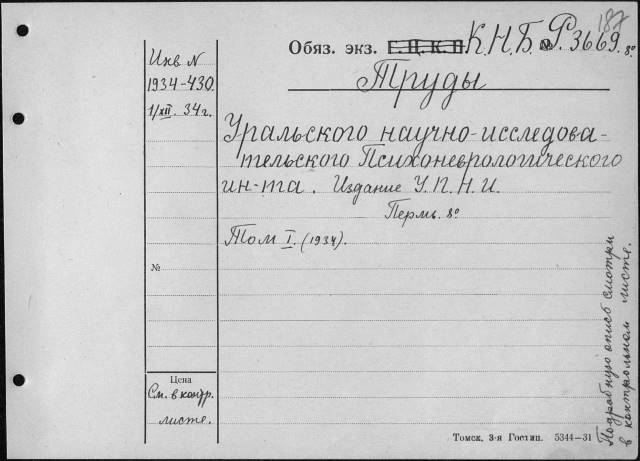 187
Обяз. экз. Г.Ц.К.П. К.Н.Б. № Р. 3669. 8º
Инв N
1934-430.
1/XII. 34 г.
Труды
Уральского научно-исследова-
тельского Психоневрологического
ин-та. Издание У.П.Н.И.
Пермь. 8º
Том I. (1934).
№
Цена
См. в контр.
листе.
Подробную опись смотри
в контрольном листе.
Томск. 3-я Гостип. 5344—31